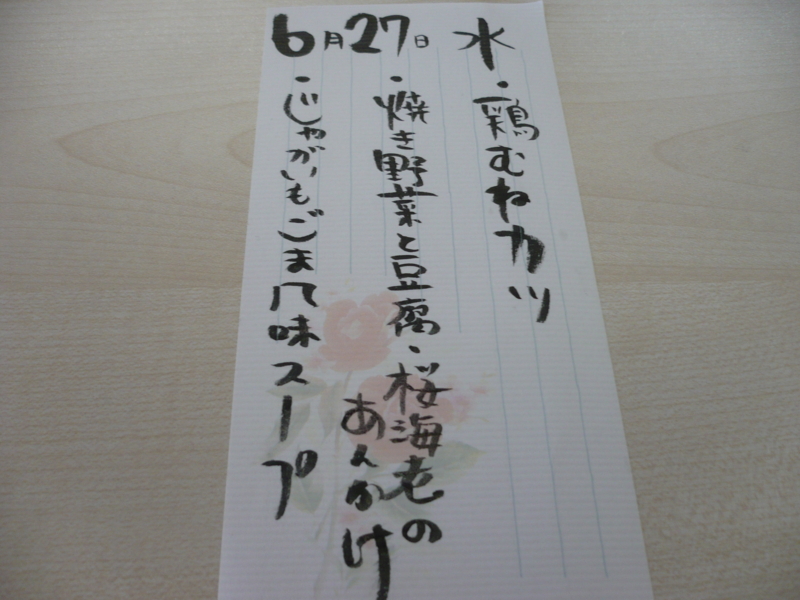 6月27日 水
・鶏むねカツ
・焼き野菜と豆腐・桜海老の
あんかけ
・じゃがいもごま風味スープ